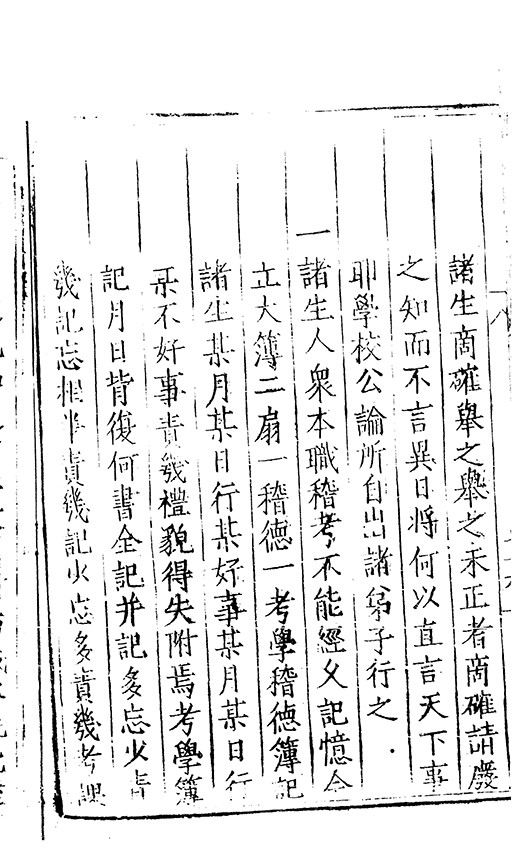 諸生啇確舉之舉之未正者啇確請嚴
之知而不言異日将何以直言天下事
耶學校公論所自出諸弟子行之
一諸生人衆本職稽考不能經乆記憶今
立大簿二扇一稽德一考學稽德簿記
諸生某月某日行某好事某月某日行
某不好事責幾禮貌得失附焉考學簿
記月日背復何書全記并記多忘少責
幾記忘相半責幾記少忘多責幾考課